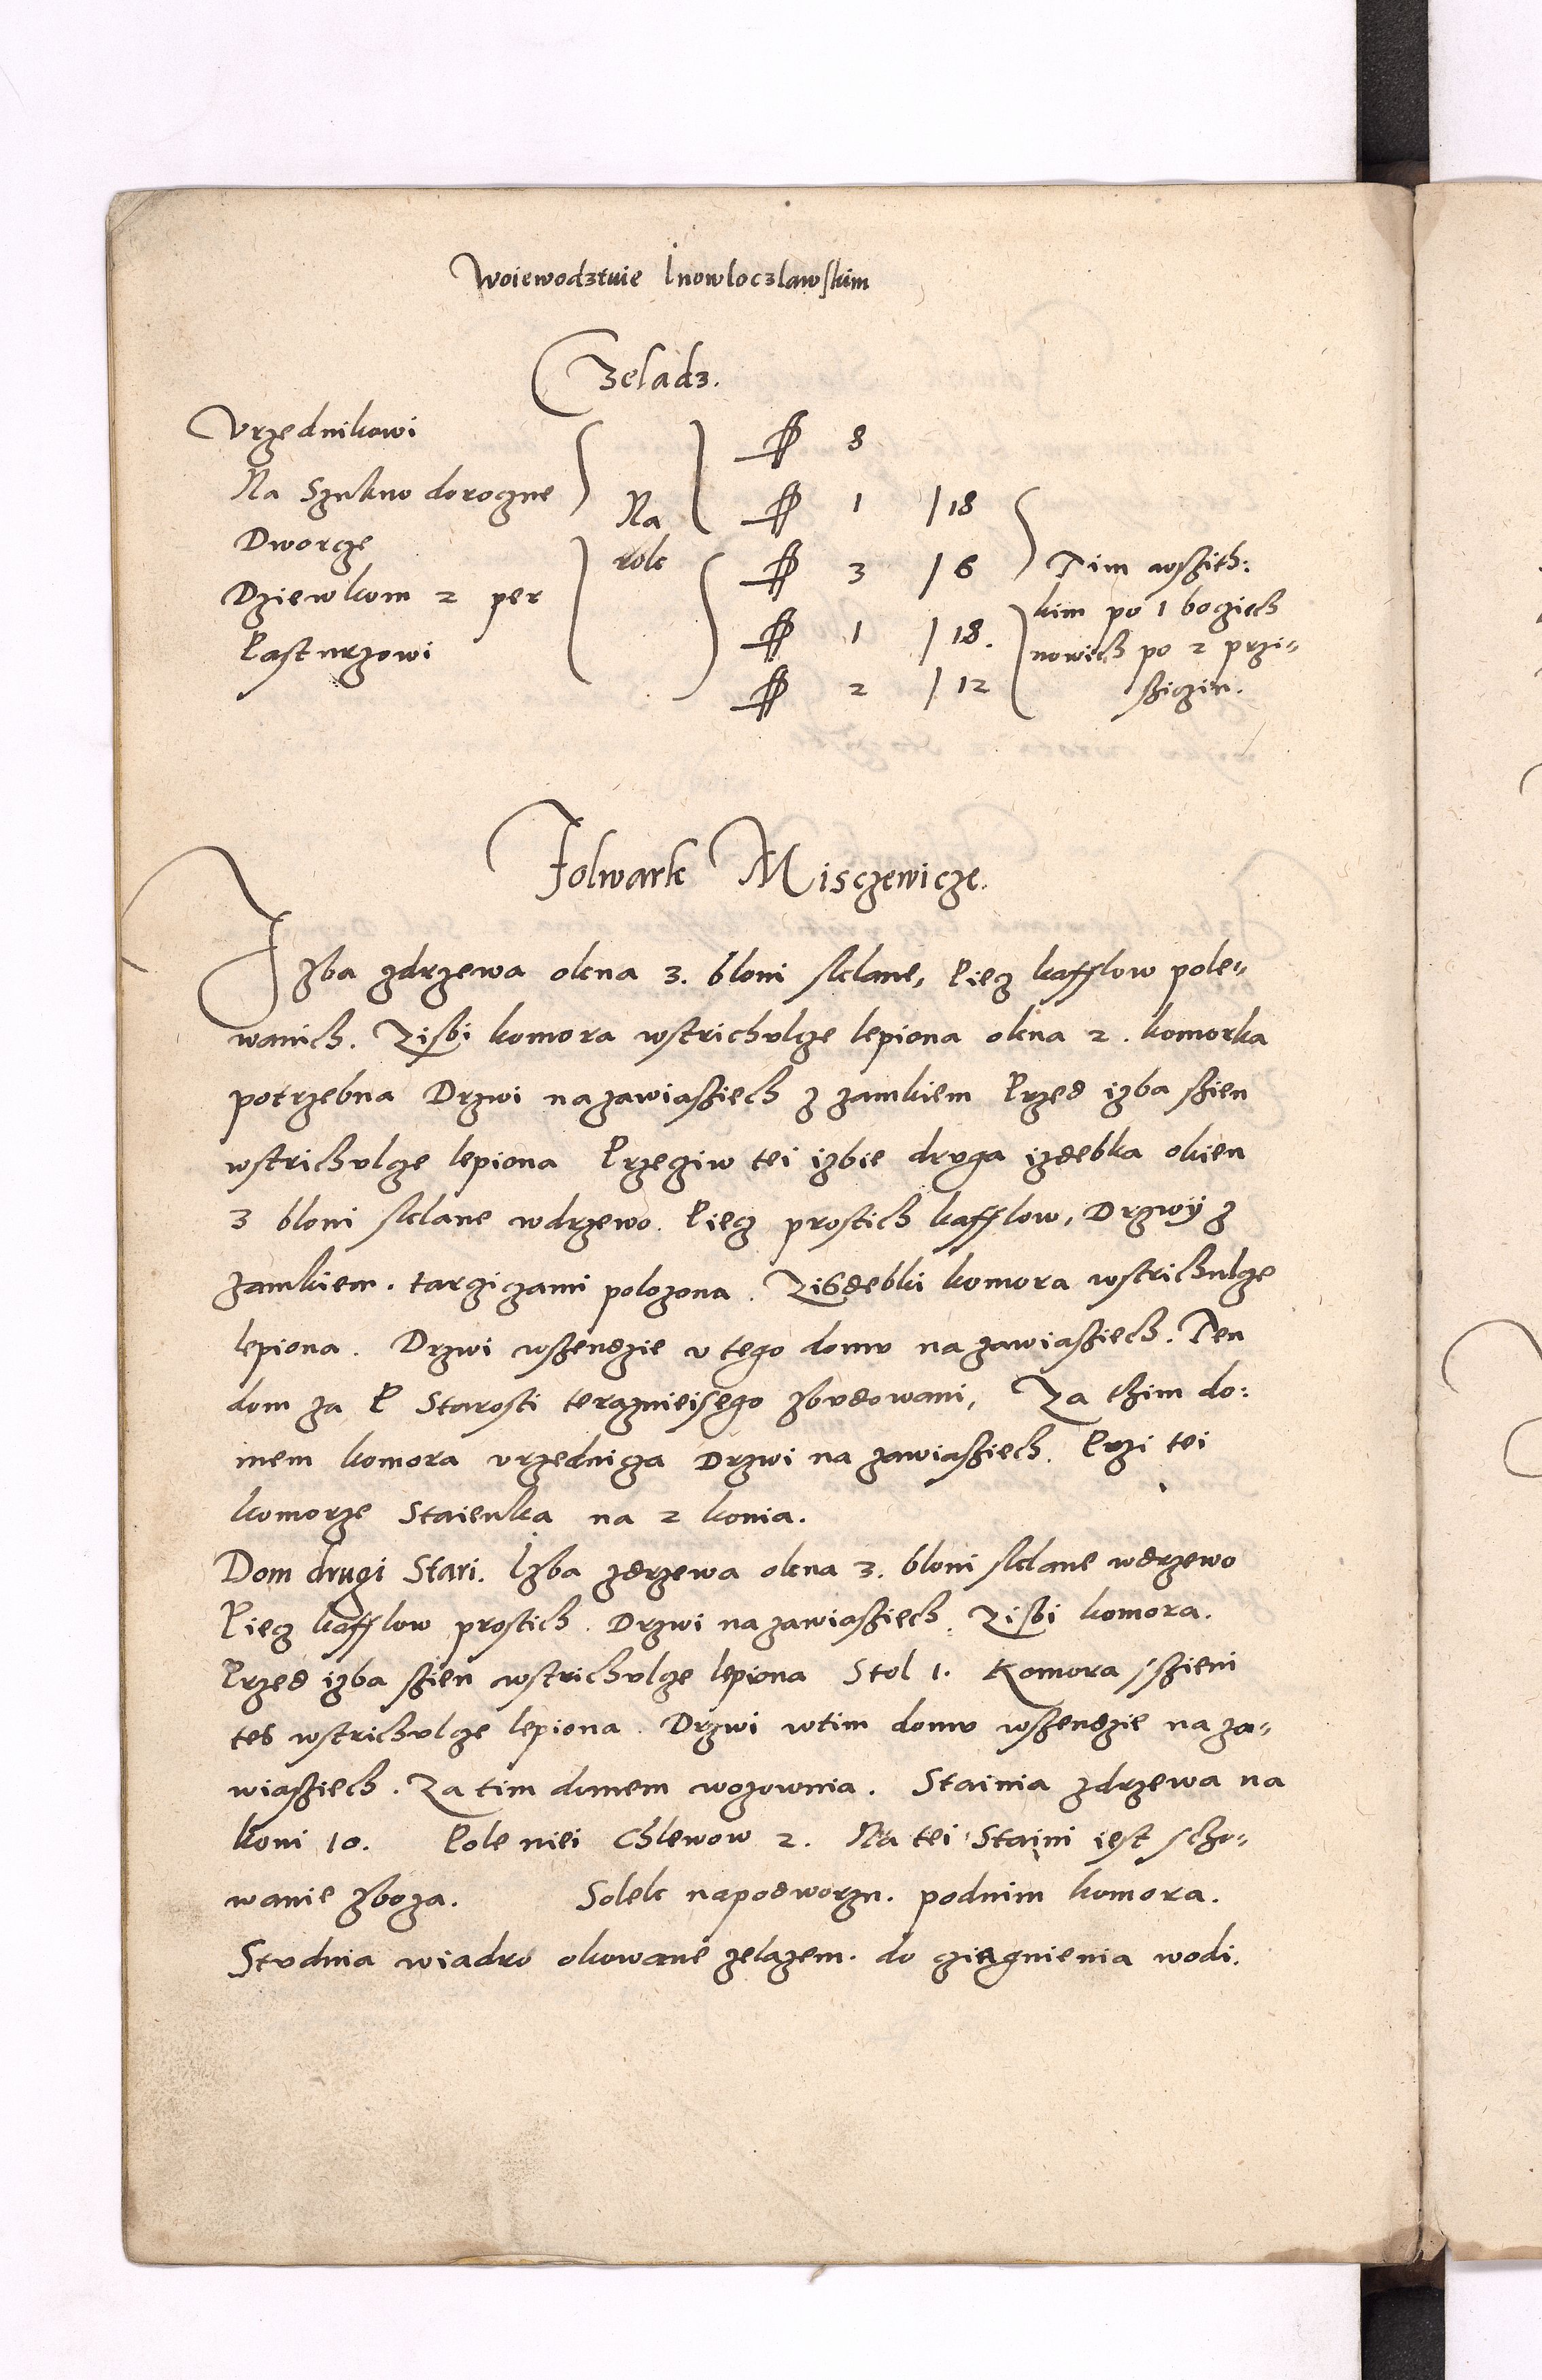 Woiewodztwie Inowloczlawskim
Czeladz.
Vrzednikowi fl 8
Na Szukno doroczne fl 1 / 18
Na rok
Dworcze fl 3 / 6
Dziewkom 2 per fl 1 / 18.
Pasturzowi fl 2 / 12
Tim wszith:
kim po 1 boczieh
nowich po 2 przi-
sziczin.
Folwark Misczewicze.
Izba zdrzewa okna 3. bloni sklane, Piecz kafflow pole-
wanich. Zisbi komora wstrichulcze lepiona okna 2. komorka
potrzebna Drzwi na zawiasziech z zamkiem Przed izba szien
wstrichulcze lepiona Przeciw tei izbie druga izdebka okien
3 bloni sklane wdrzewo. Piecz prostich kafflow, Drzwÿ z
zamkiem. tarcziczami polozona. Zisdebki komora wstrichulcze
lepiona. Drzwi wszendzie v tego domu na zawiasziech. Ten
dom za P Starosti teraznieisego zbudowani, Za thim do:
mem komora vrzednicza Drzwi na zawiasziech. Przi tei
komorze Staienka na 2 konia.
Dom drugi Stari. Izba zdrzewa okna 3. bloni sklane wdrzewo
Piecz kafflow prostich. Drzwi na zawiasziech. Zisbi komora.
Przed izba szien wstrichulcze lepiona Stol 1. Komora sszieni
tes wstrichulcze lepiona. Drzwi wtim domu wszendzie na za-
wiasziech. Za tim domem wozownia. Stainia zdrzewa na
koni 10. Pole niei Chlewow 2. Na tei Staini iest scho-
wanie zboza. Solek napodworzu. podnim komora.
Studnia wiadro okowane zelazem. do cziagnienia wodi.